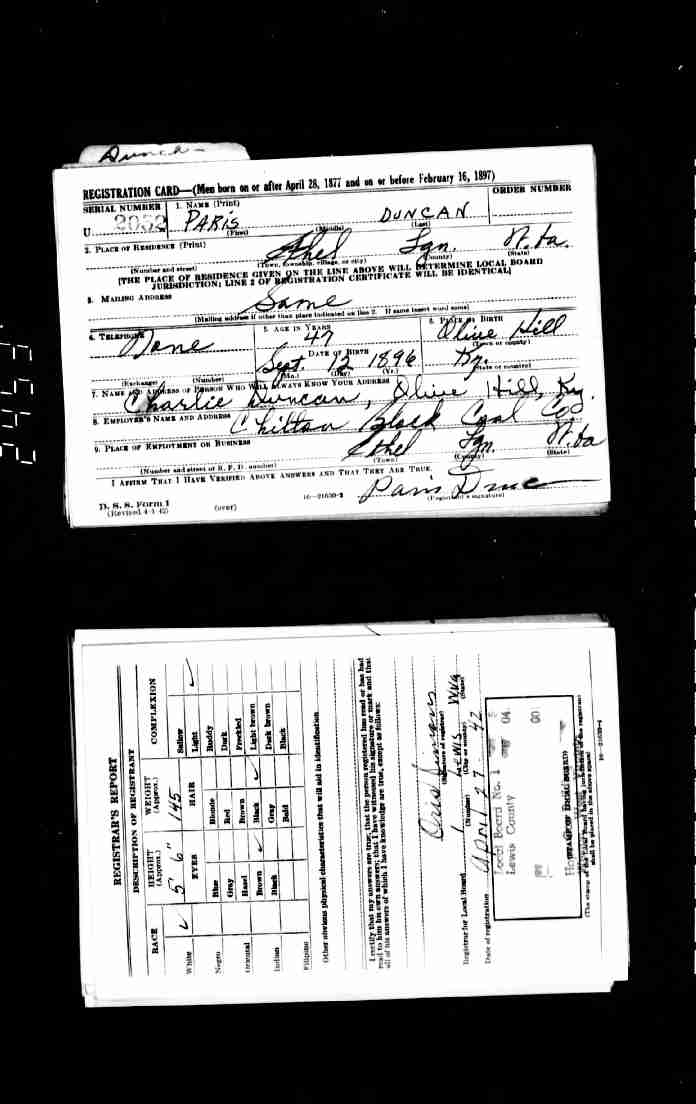 Duncan
REGISTRATION CARD—(Men born on or after April 28, 1877 and on or before February 16, 1897)
SERIAL NUMBER 1. NAME (Print) ORDER NUMBER
U 2032 PARIS DUNCAN
(First) (Middle) (Last)
2. PLACE OF RESIDENCE (Print)
Ethel Lgn. W.Va.
(Number and street) (Town, township, village, or city) (County) (State)
[THE PLACE OF RESIDENCE GIVEN ON THE LINE ABOVE WILL DETERMINE LOCAL BOARD
JURISDICTION; LINE 2 OF REGISTRATION CERTIFICATE WILL BE IDENTICAL]
3. MAILING ADDRESS
Same
(Mailing address if other than place indicated on line 2. If same insert word same)
4. TELEPHONE 5. AGE IN YEARS 6. PLACE OF BIRTH
None 47 Olive Hill
DATE OF BIRTH (Town or county)
Sept. 12 1896 Ky.
(Exchange) (Number) (Mo.) (Day) (Yr.) (State or country)
7. NAME AND ADDRESS OF PERSON WHO WILL ALWAYS KNOW YOUR ADDRESS
Charlie Duncan, Olive Hill, Ky.
8. EMPLOYER'S NAME AND ADDRESS
Chilton Block Coal Co
9. PLACE OF EMPLOYMENT OR BUSINESS
Ethel Lgn. W.Va
(Number and street or R. F. D. number) (Town) (County) (State)
I AFFIRM THAT I HAVE VERIFIED ABOVE ANSWERS AND THAT THEY ARE TRUE.
D. S. S. Form 1
(Revised 4-1-42) (over) 16—21630-2 (Registrant's signature)
REGISTRAR'S REPORT
DESCRIPTION OF REGISTRANT
RACE HEIGHT (Approx.) WEIGHT (Approx.) COMPLEXION
White ✓ 5' 6" 145 Sallow
EYES HAIR Light ✓
Negro Blue Blonde Ruddy
Gray Red Dark
Oriental Hazel Brown Freckled
Brown ✓ Black ✓ Light brown
Indian Black Gray Dark brown
Bald Black
Filipino
Other obvious physical characteristics that will aid in identification
I certify that my answers are true; that the person registered has read or has had
read to him his own answers; that I have witnessed his signature or mark and that
all of his answers of which I have knowledge are true, except as follows:
(Signature of registrar)
Registrar for Local Board 1 Lewis WVa
(Number) (City or county) (State)
Date of registration April 27 - 42
Local Board No. 1
Lewis County
(STAMP OF LOCAL BOARD)
(The stamp of the Local Board having jurisdiction of the registrant
shall be placed in the above space)
16—21630-2